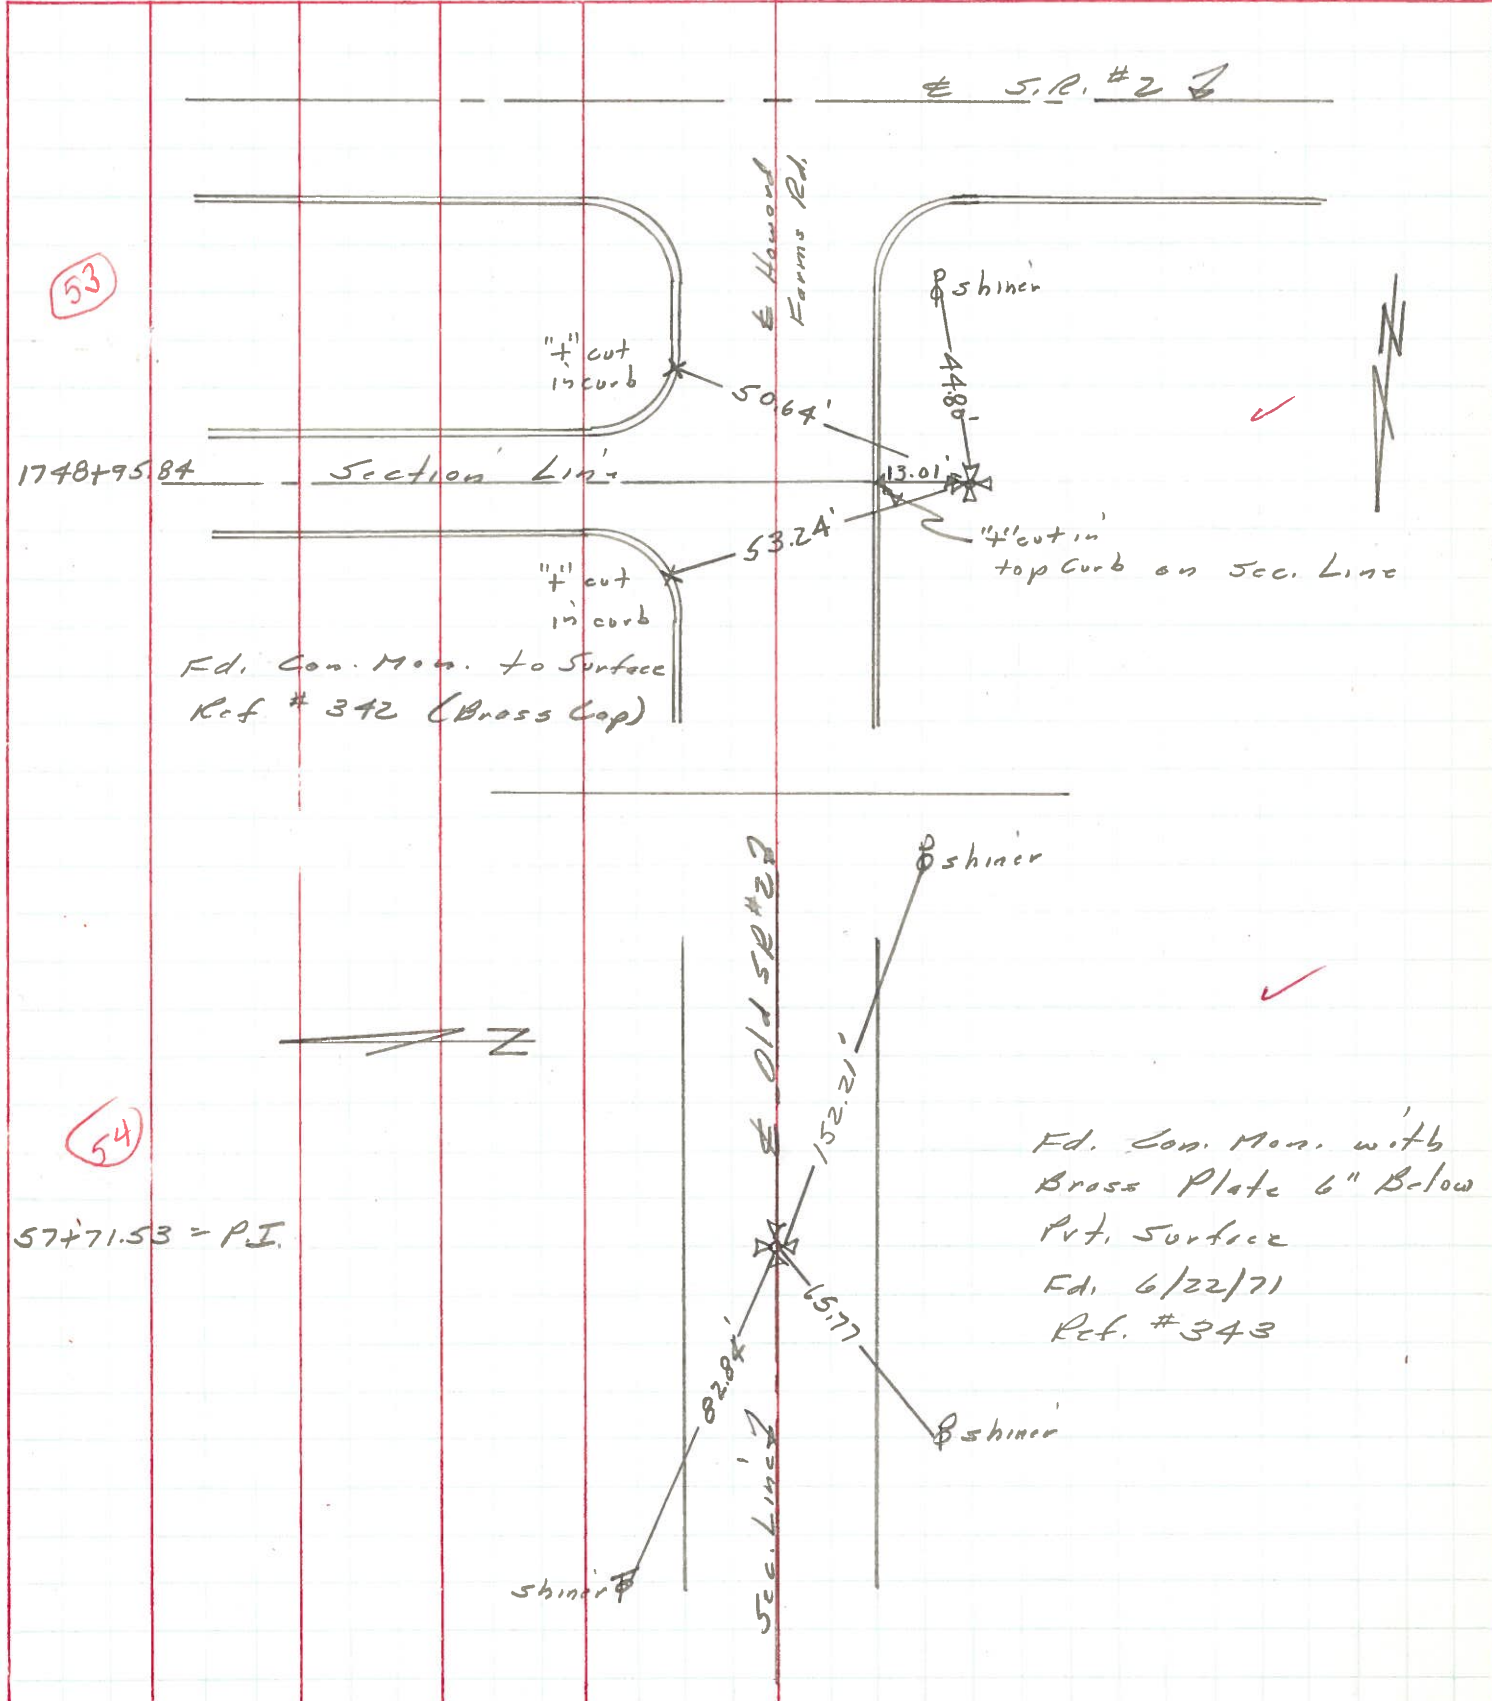 ℄ S.R. #2
℄ Howard
Farms Rd.
53
shiner
"+" cut
in curb
50.64'
44.80'
1748+95.84
Section Line
13.01'
53.24'
"+" cut in
top Curb on Sec. Line
"+" cut
in curb
Fd. Con. Mon. to Surface
Ref # 342 (Brass Cap)
℄ Old SR #2
shiner
N
N
152.21'
54
57+71.53 = P.I.
Fd. Con. Mon. with
Brass Plate 6" Below
Pvt. Surface
Fd. 6/22/71
Ref. #343
65.77
82.84'
shiner
Sec. Line
shiner